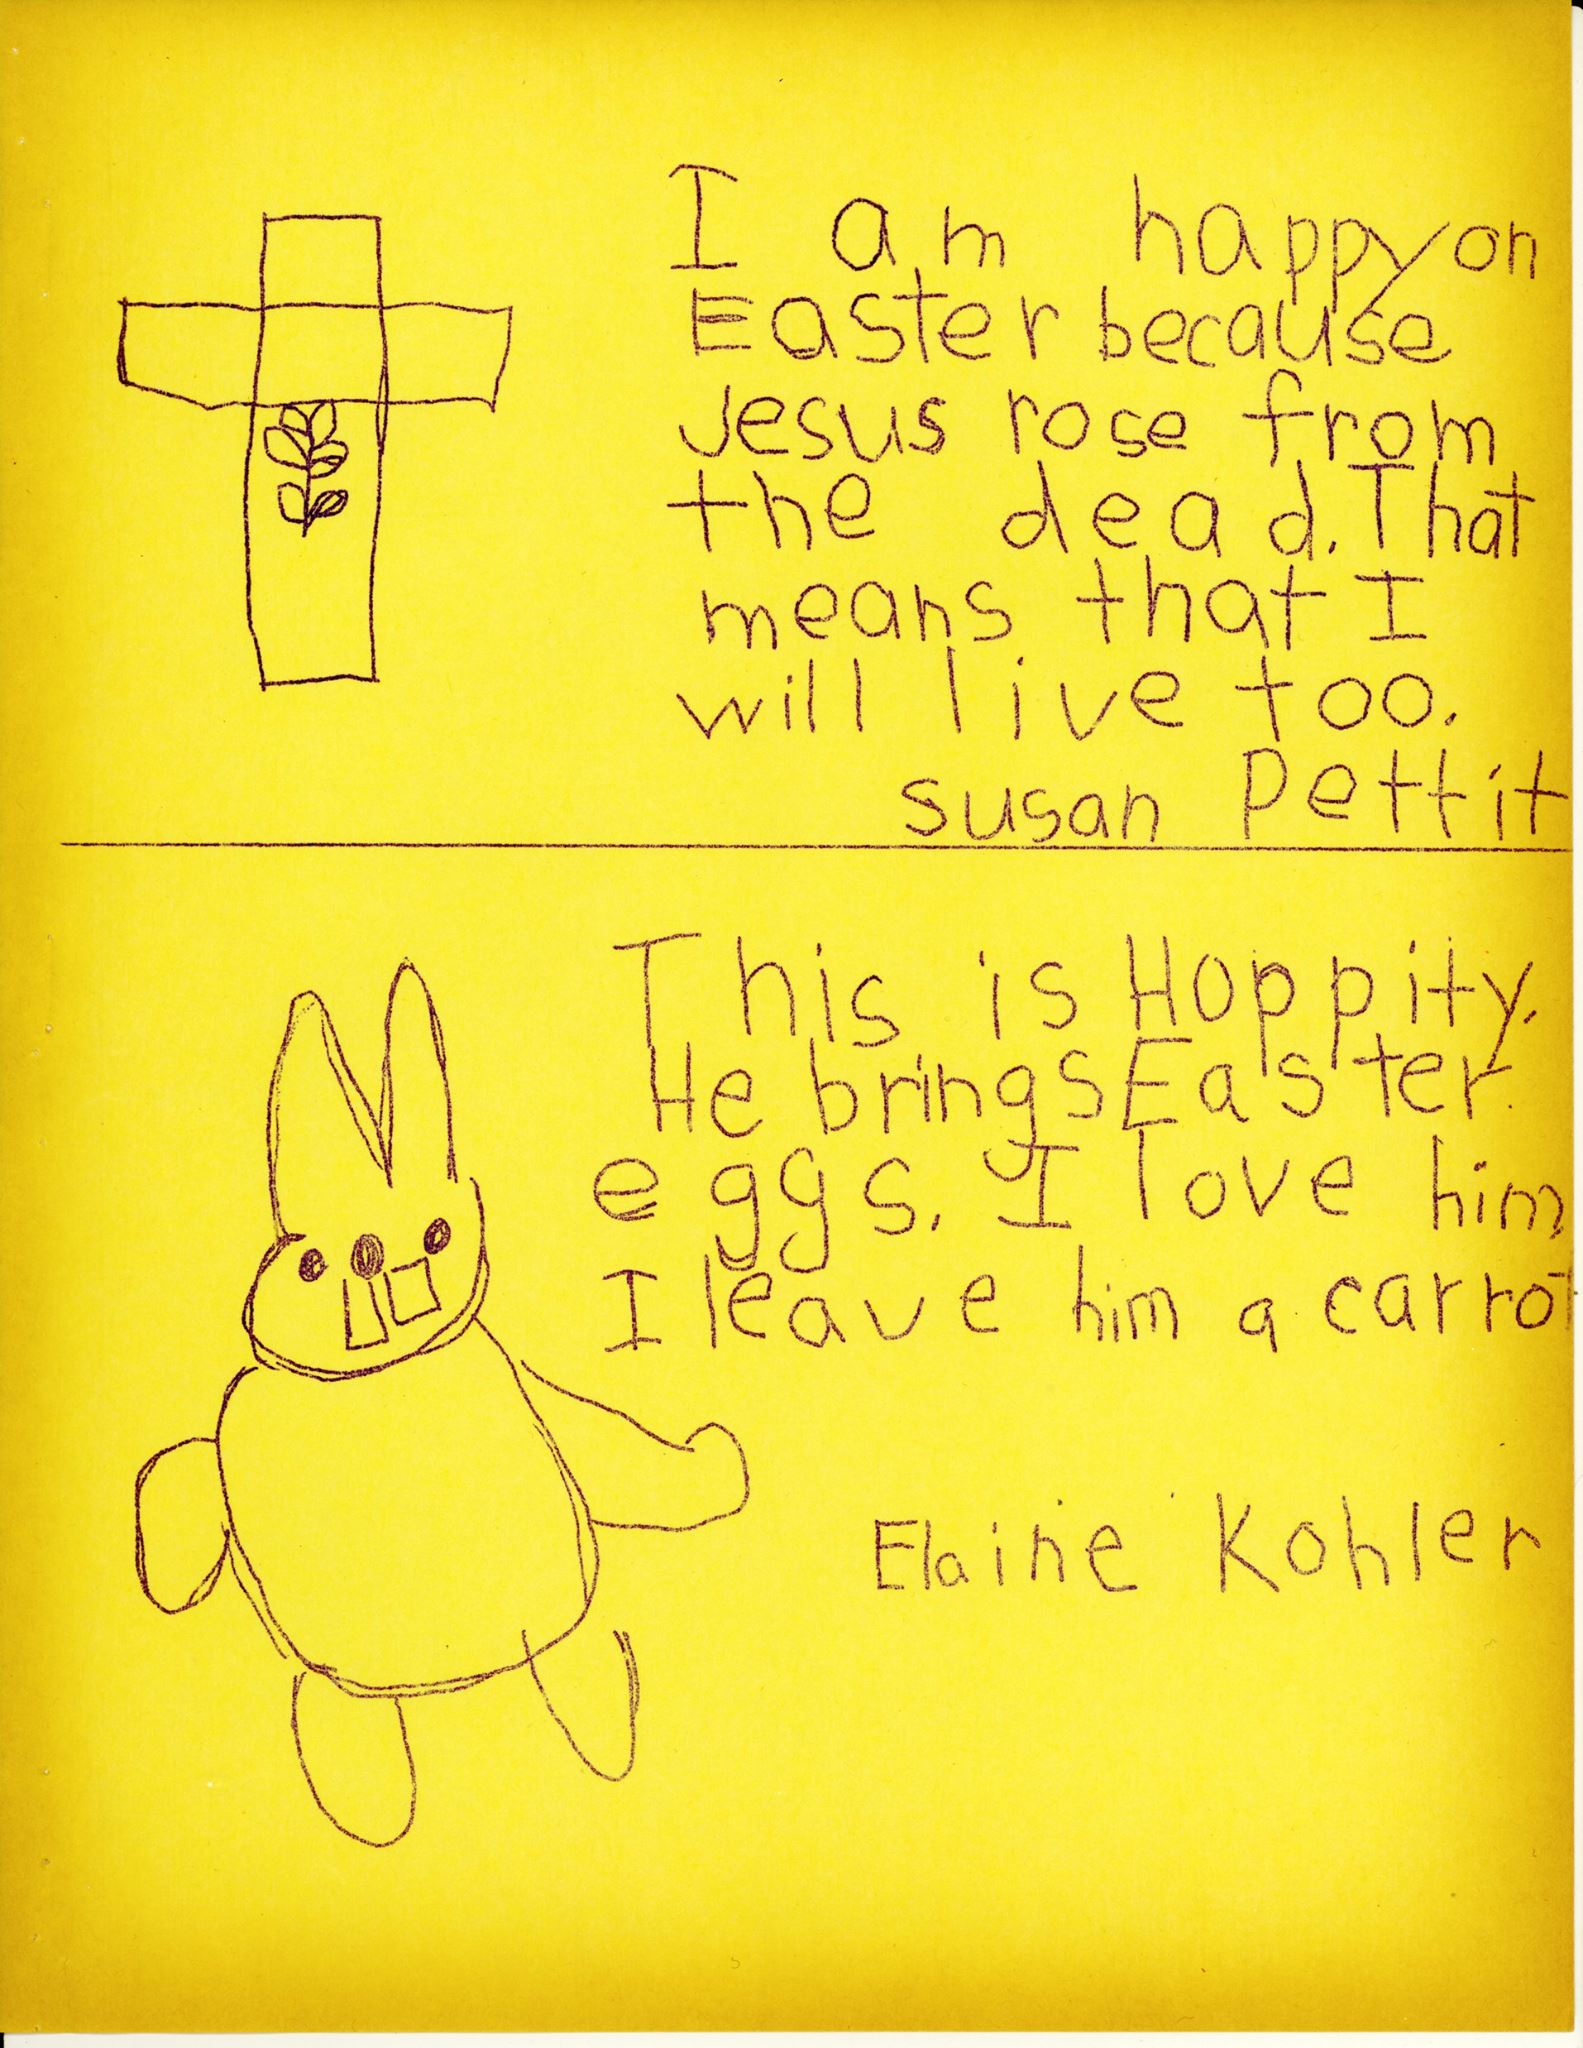 I am happy on
Easter because
Jesus rose from
the dead. That
means that I
will live too.
susan Pettit
This is Hoppity.
He brings Easter
eggs. I love him
I leave him a carrot
Elaine Kohler